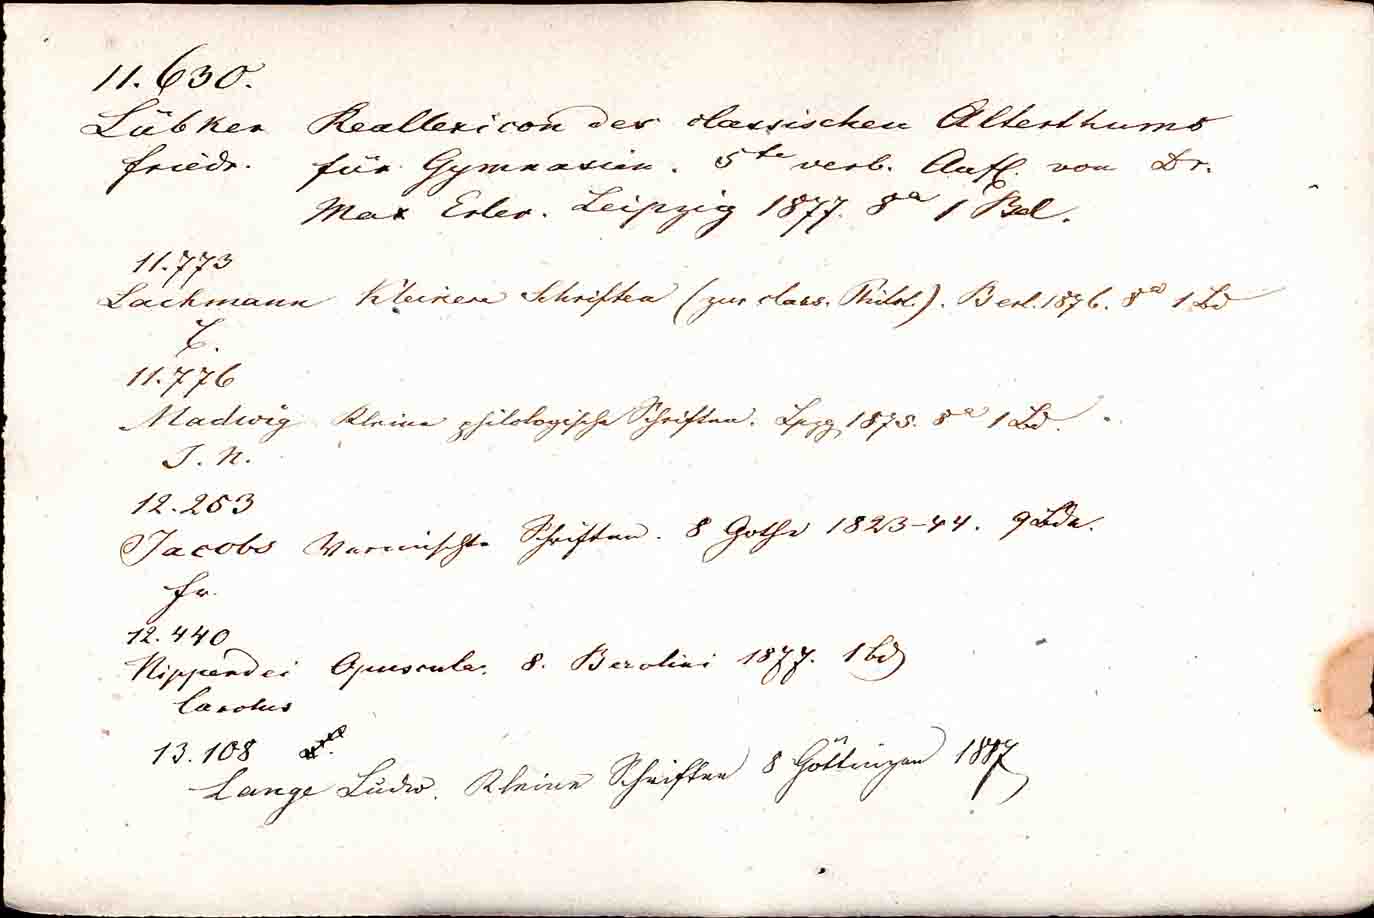 11.630.
Lübker Reallexicon des classischen Alterthums
Friedr. für Gymnasien. 5te verb. Aufl. von Dr.
Max Erler. Leipzig 1877. 8° 1 Bd.
11.773
Lachmann Kleinere Schriften (zur class. Philol.). Berl. 1876. 8° 1 Bd
C.
11.776
Madwig Kleine philologische Schriften. Lpzg 1875. 8° 1 Bd.
J. N.
12.253
Jacobs Vermischte Schriften. 8 Gotha 1823-44. 9 Bde.
Fr.
12.440
Nipperdei Opuscula. 8. Berolini 1877. 1 bd
Carolus
13.108
Lange Ludw. Kleine Schriften 8 Göttingen 1887